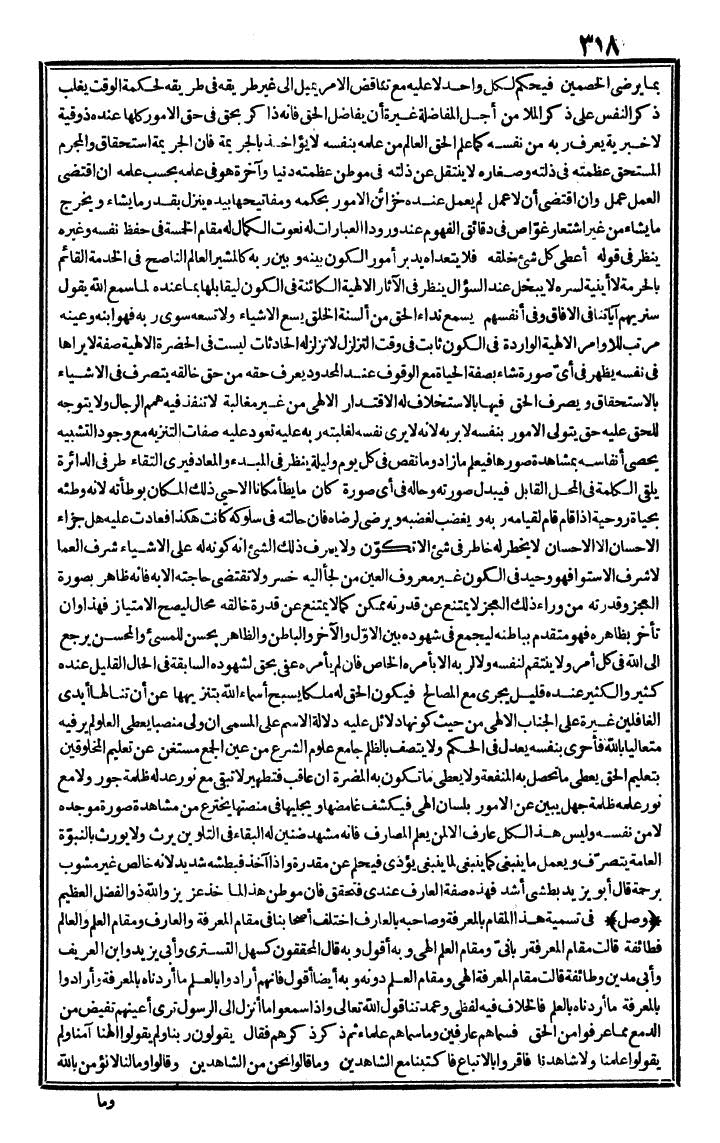 ٣١٨
بما يرضى الخصمين فيحكم لكل واحد لا عليه مع تناقض الامر يميل الى غير طريقه فى طريقه لحكمة الوقت يغلب
ذكر النفس على ذكر الملا من أجل المفاضلة غيرة أن يفاضل الحق فانه ذا كر بحق فى حق الامور كلها عنده ذوقية
لاخبرية يعرف ربه من نفسه كما علم الحق العالم من علمه بنفسه لايؤاخذ بالجريمة فان الجريمة استحقاق والمجرم
المستحق عظمته فى ذلته وصغاره لا ينتقل عن ذلته فى موطن عظمته دنيا وآخرة هو فى علمه بحسب علمه ان اقتضى
العمل عمل وان اقتضى أن لا عمل لم يعمل عنده خزائن الامور بحكمه ومفاتيحها بيده ينزل بقدر ما يشاء ويخرج
ما يشاء من غير اشتعار غوّاص فى دقائق الفهوم عند ورود العبارات له نعوت الكمال له مقام الخمسة فى حفظ نفسه وغيره
ينظر فى قوله أعطى كل شئ خلقه فلا يتعداه يدبر أمور الكون بينه وبين ربه كالمشير العالم الناصح فى الخدمة القائم
بالحرمة لا أينية لسره لا يبخل عند السؤال ينظر فى الآثار الالهية الكائنة فى الكون ليقابلها بما عنده لما سمع الله يقول
سنريهم آياتنا فى الآفاق وفى أنفسهم يسمع نداء الحق من ألسنة الخلق يسع الاشياء ولا تسعه سوى ربه فهو ابنه وعينه
مرتب للاوامر الالهية الواردة فى الكون ثابت فى وقت التزلزل لا تزلزله الحادثات ليست فى الحضرة الالهية صفة لايراها
فى نفسه يظهر فى أىّ صورة شاء بصفة الحياة مع الوقوف عند المحدود يعرف حقه من حق خالقه يتصرف فى الاشياء
بالاستحقاق ويصرف الحق فيها بالاستخلاف له الاقتدار الالهى من غير مغالبة لا تنفذ فيه همم الرجال ولا يتوجه
للحق عليه حق يتولى الامور بنفسه لا بربه لانه لايرى نفسه لغلبته ربه عليه تعود عليه صفات التنزيه مع وجود التشبيه
يحصى أنفاسه بمشاهدة صورها فيعلم مازاد وما نقص فى كل يوم وليلة ينظر فى المبدء والمعاد فيرى التقاء طرفى الدائرة
يلقى الكلمة فى المحل القابل فيبدل صورته وحاله فى أى صورة كان ما يطأ مكانا الاحي ذلك المكان بوطأته لانه وطئه
بحياة روحية اذا قام قام لقيامه ربه و يغضب لغضبه ويرضى لرضاه فان حالته فى سلوكه كانت هكذا فعادت عليه هل جزاء
الاحسان الا الاحسان لا يخطر له خاطر فى شئ الا تكوّن ولا يعرف ذلك الشئ انه كونه له على الاشياء شرف العما
لا شرف الاستوا فهو وحيد فى الكون غير معروف العين من لجأ اليه خسر ولا تقتضى حاجته الابه فانه ظاهر بصورة
العجز وقدرته من وراء ذلك العجز لا يمتنع عن قدرته ممكن كما لا يمتنع عن قدرة خالقه محال ليصح الامتياز فهذا وان
تأخر بظاهره فهو متقدم بباطنه ليجمع فى شهوده بين الاوّل والآخر والباطن والظاهر يحسن للمسئ والمحسن يرجع
الى الله فى كل أمر ولا ينتقم لنفسه ولا لربه الا بأمره الخاص فان لم يأمره عفى بحق لشهوده السابقة فى الحال القليل عنده
كثير والكثير عنده قليل يجرى مع المصالح فيكون الحق له ملكا يسبح أسماء الله بتنزيهها عن أن تنالها أيدى
الغافلين غيرة على الجناب الالهى من حيث كونها دلائل عليه دلالة الاسم على المسمى ان ولى منصبا يعطى العلو لم ير فيه
متعاليا بالله فأحرى بنفسه يعدل فى الحكم ولا يتصف بالظلم جامع علوم الشرع من عين الجمع مستغن عن تعليم المخلوقين
بتعليم الحق يعطى ما تحصل به المنفعة ولا يعطى ما تكون به المضرة ان عاقب فتطهير لا تبقى مع نور عدله ظلمة جور ولا مع
نور علمه ظلمة جهل يبين عن الامور بلسان الهى فيكشف غامضها ويجليها فى منصتها يخترع من مشاهدة صورة موجده
لا من نفسه وليس هذا لكل عارف الالمن يعلم المصارف فانه مشهد ضنين له البقاء فى التلوين يرث ولا يورث بالنبوّة
العامة يتصرّف ويعمل ما ينبغى كما ينبغى لما ينبغى يؤذى فيحلم عن مقدرة واذا آخذ فبطشه شديد لانه خالص غير مشوب
برحمة قال أبو يزيد بطشى أشد فهذه صفة العارف عندى فتحقق فان موطن هذا المأخذ عزيز والله ذو الفضل العظيم
﴿وصل﴾ فى تسمية هذا المقام بالمعرفة وصاحبه بالعارف اختلف أصحابنا فى مقام المعرفة والعارف ومقام العلم والعالم
فطائفة قالت مقام المعرفة ربانىّ ومقام العلم الهى وبه أقول وبه قال المحققون كسهل التسترى وأبى يزيد وابن العريف
وأبى مدين وطائفة قالت مقام المعرفة الهى ومقام العلم دونه وبه أيضا أقول فانهم أرادوا بالعلم ما أردناه بالمعرفة وأرادوا
بالمعرفة ما أردناه بالعلم فالخلاف فيه لفظى وعمدتنا قول الله تعالى واذا سمعوا ما أنزل الى الرسول ترى أعينهم تفيض من
الدمع مما عرفوا من الحق فسماهم عارفين وما سماهم علماء ثم ذكر ذكرهم فقال يقولون ربنا ولم يقولوا الهنا آمنا ولم
يقولوا علمنا ولا شاهدنا فاقروا بالاتباع فاكتبنا مع الشاهدين وما قالوا نحن من الشاهدين وقالوا وما لنا لا نؤمن بالله
وما